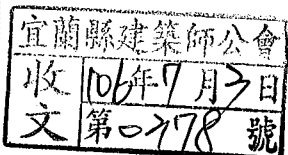 宜蘭縣建築師公會
收文
106年7月3日
第0778號